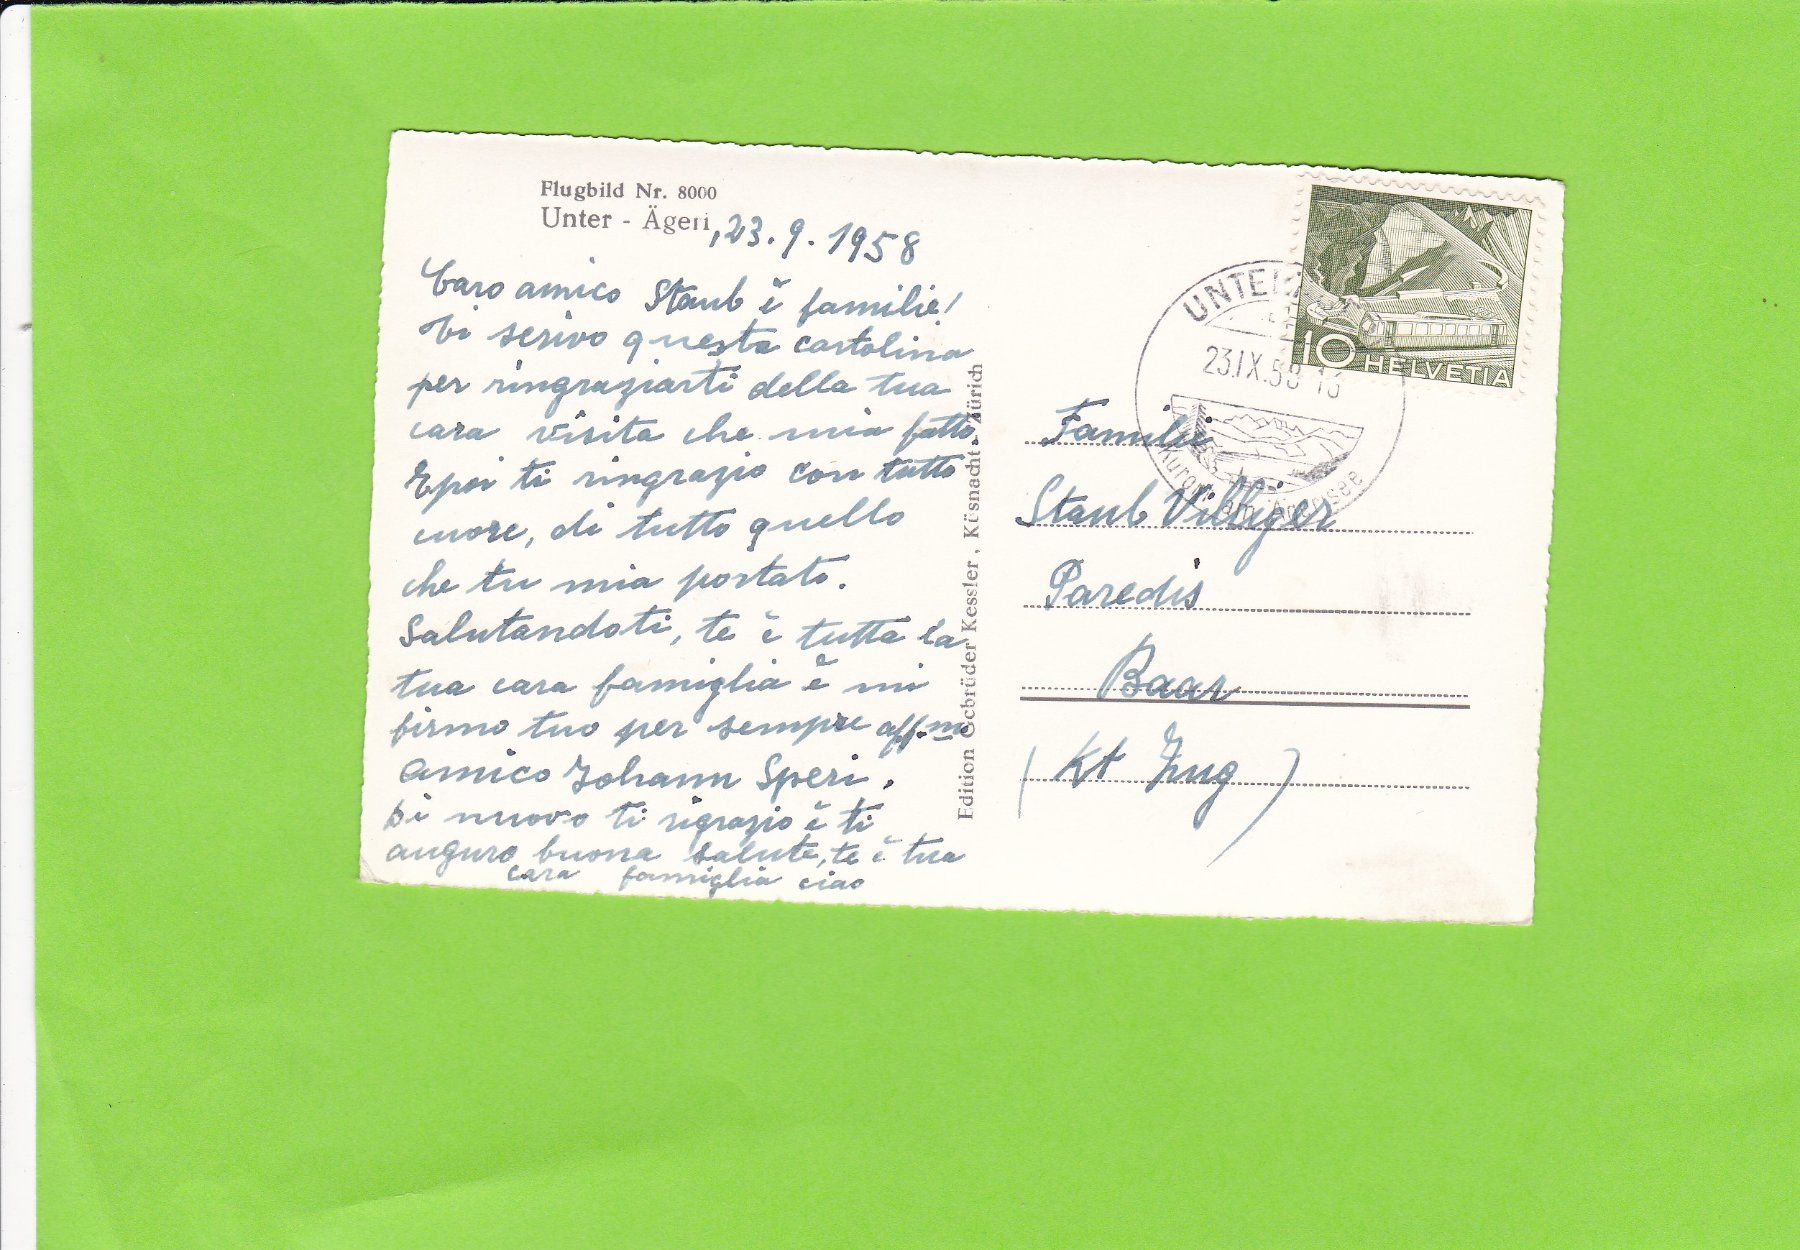 Flugbild Nr. 8000
Unter - Ägeri, 23. 9. 1958
Caro amico Staub è familie!
Ti scrivo questa cartolina
per ringraziarti della tua
cara visita che mia fatto
Epoi ti ringrazio con tutto
cuore, di tutto quello
che tu mia portato.
Salutandoti, te è tutta la
tua cara famiglia è mi
firmo tuo per sempre aff.m
amico Johann Speri.
Di nuovo ti rigrazio è ti
auguro buona salute, te è tua
cara famiglia ciao
Edition Gebrüder Kessler, Küsnacht - Zürich
23.IX.58
Kurort am Ägerisee
10 HELVETIA
Familie
Staub Villiger
Paredis
Baar
(Kt Zug)